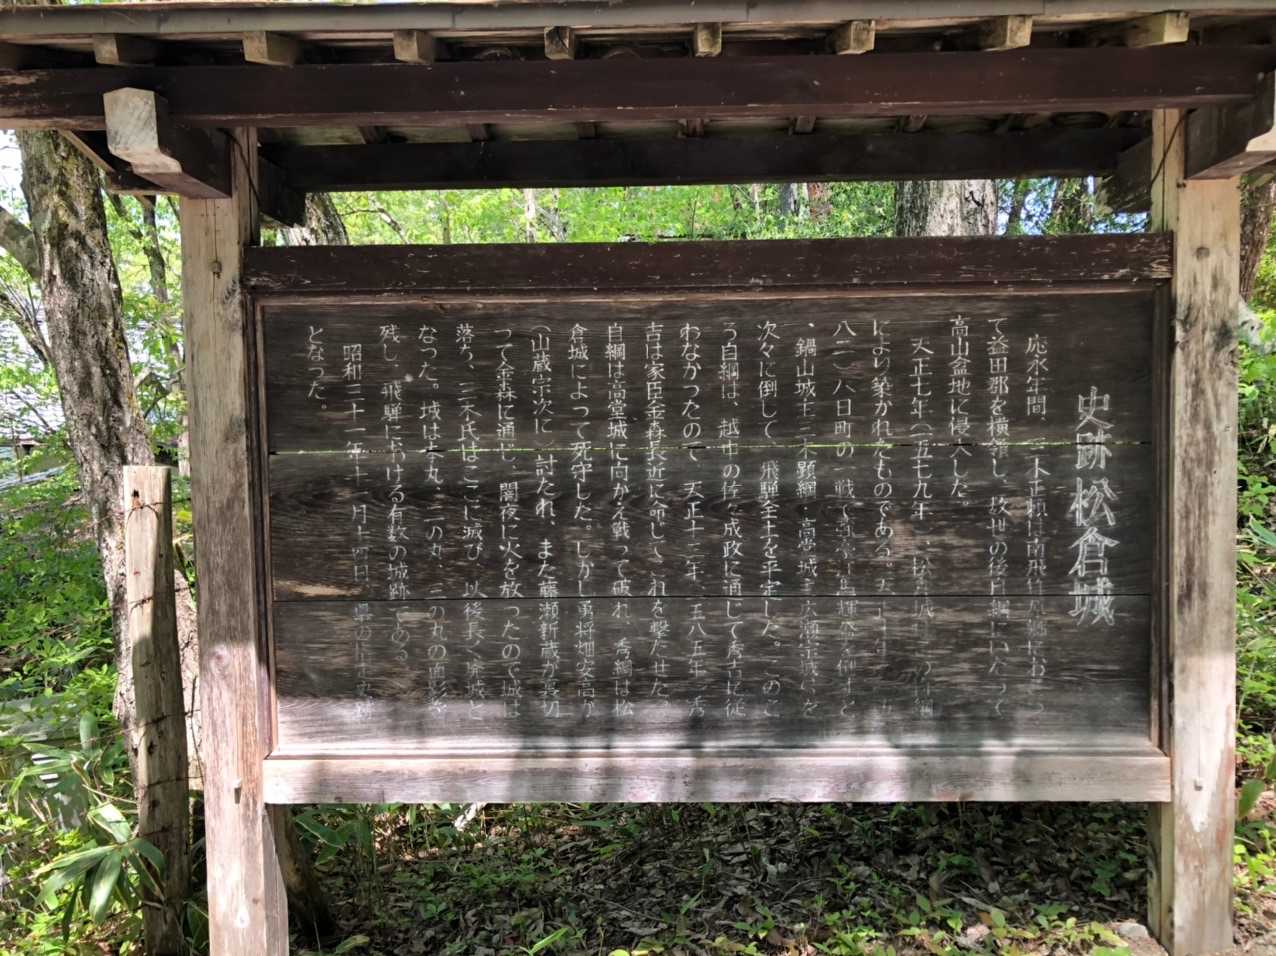 史跡 松倉城
応永年間、三木正頼は南飛
て益田郡を横領し、数世の後自綱にいたって
高山盆地に侵入した。
天正七年（一五七九年、松倉城
により築かれたものである。天正
八二）八日町の一戦で高堂
、鍋山城主三木顕綱、高堂城主広瀬宗域らを
次々に倒して、飛騨全土を平定した。このこ
ろ自綱は、越中の佐々成政に通じて秀吉に従
わなかったので、天正十三年（一五八五年）秀
吉は家臣金森長近に命じてこれを撃たせた。
自綱は高堂城に向かえ戦って破れ、秀綱は松
倉城によって死守した。しかし勇将畑安高が
（山蔵宗次に）討たれ、また藤瀬新蔵が裏切
って金森に通じ、闇夜に火を放ったので城は
落ち、三木氏はここに滅び、以後長く廃城と
なった。城は本丸、二の丸、三の丸の面影を
残し、飛騨における有数の城跡である。
昭和三十一年十一月十四日 県の
となった。